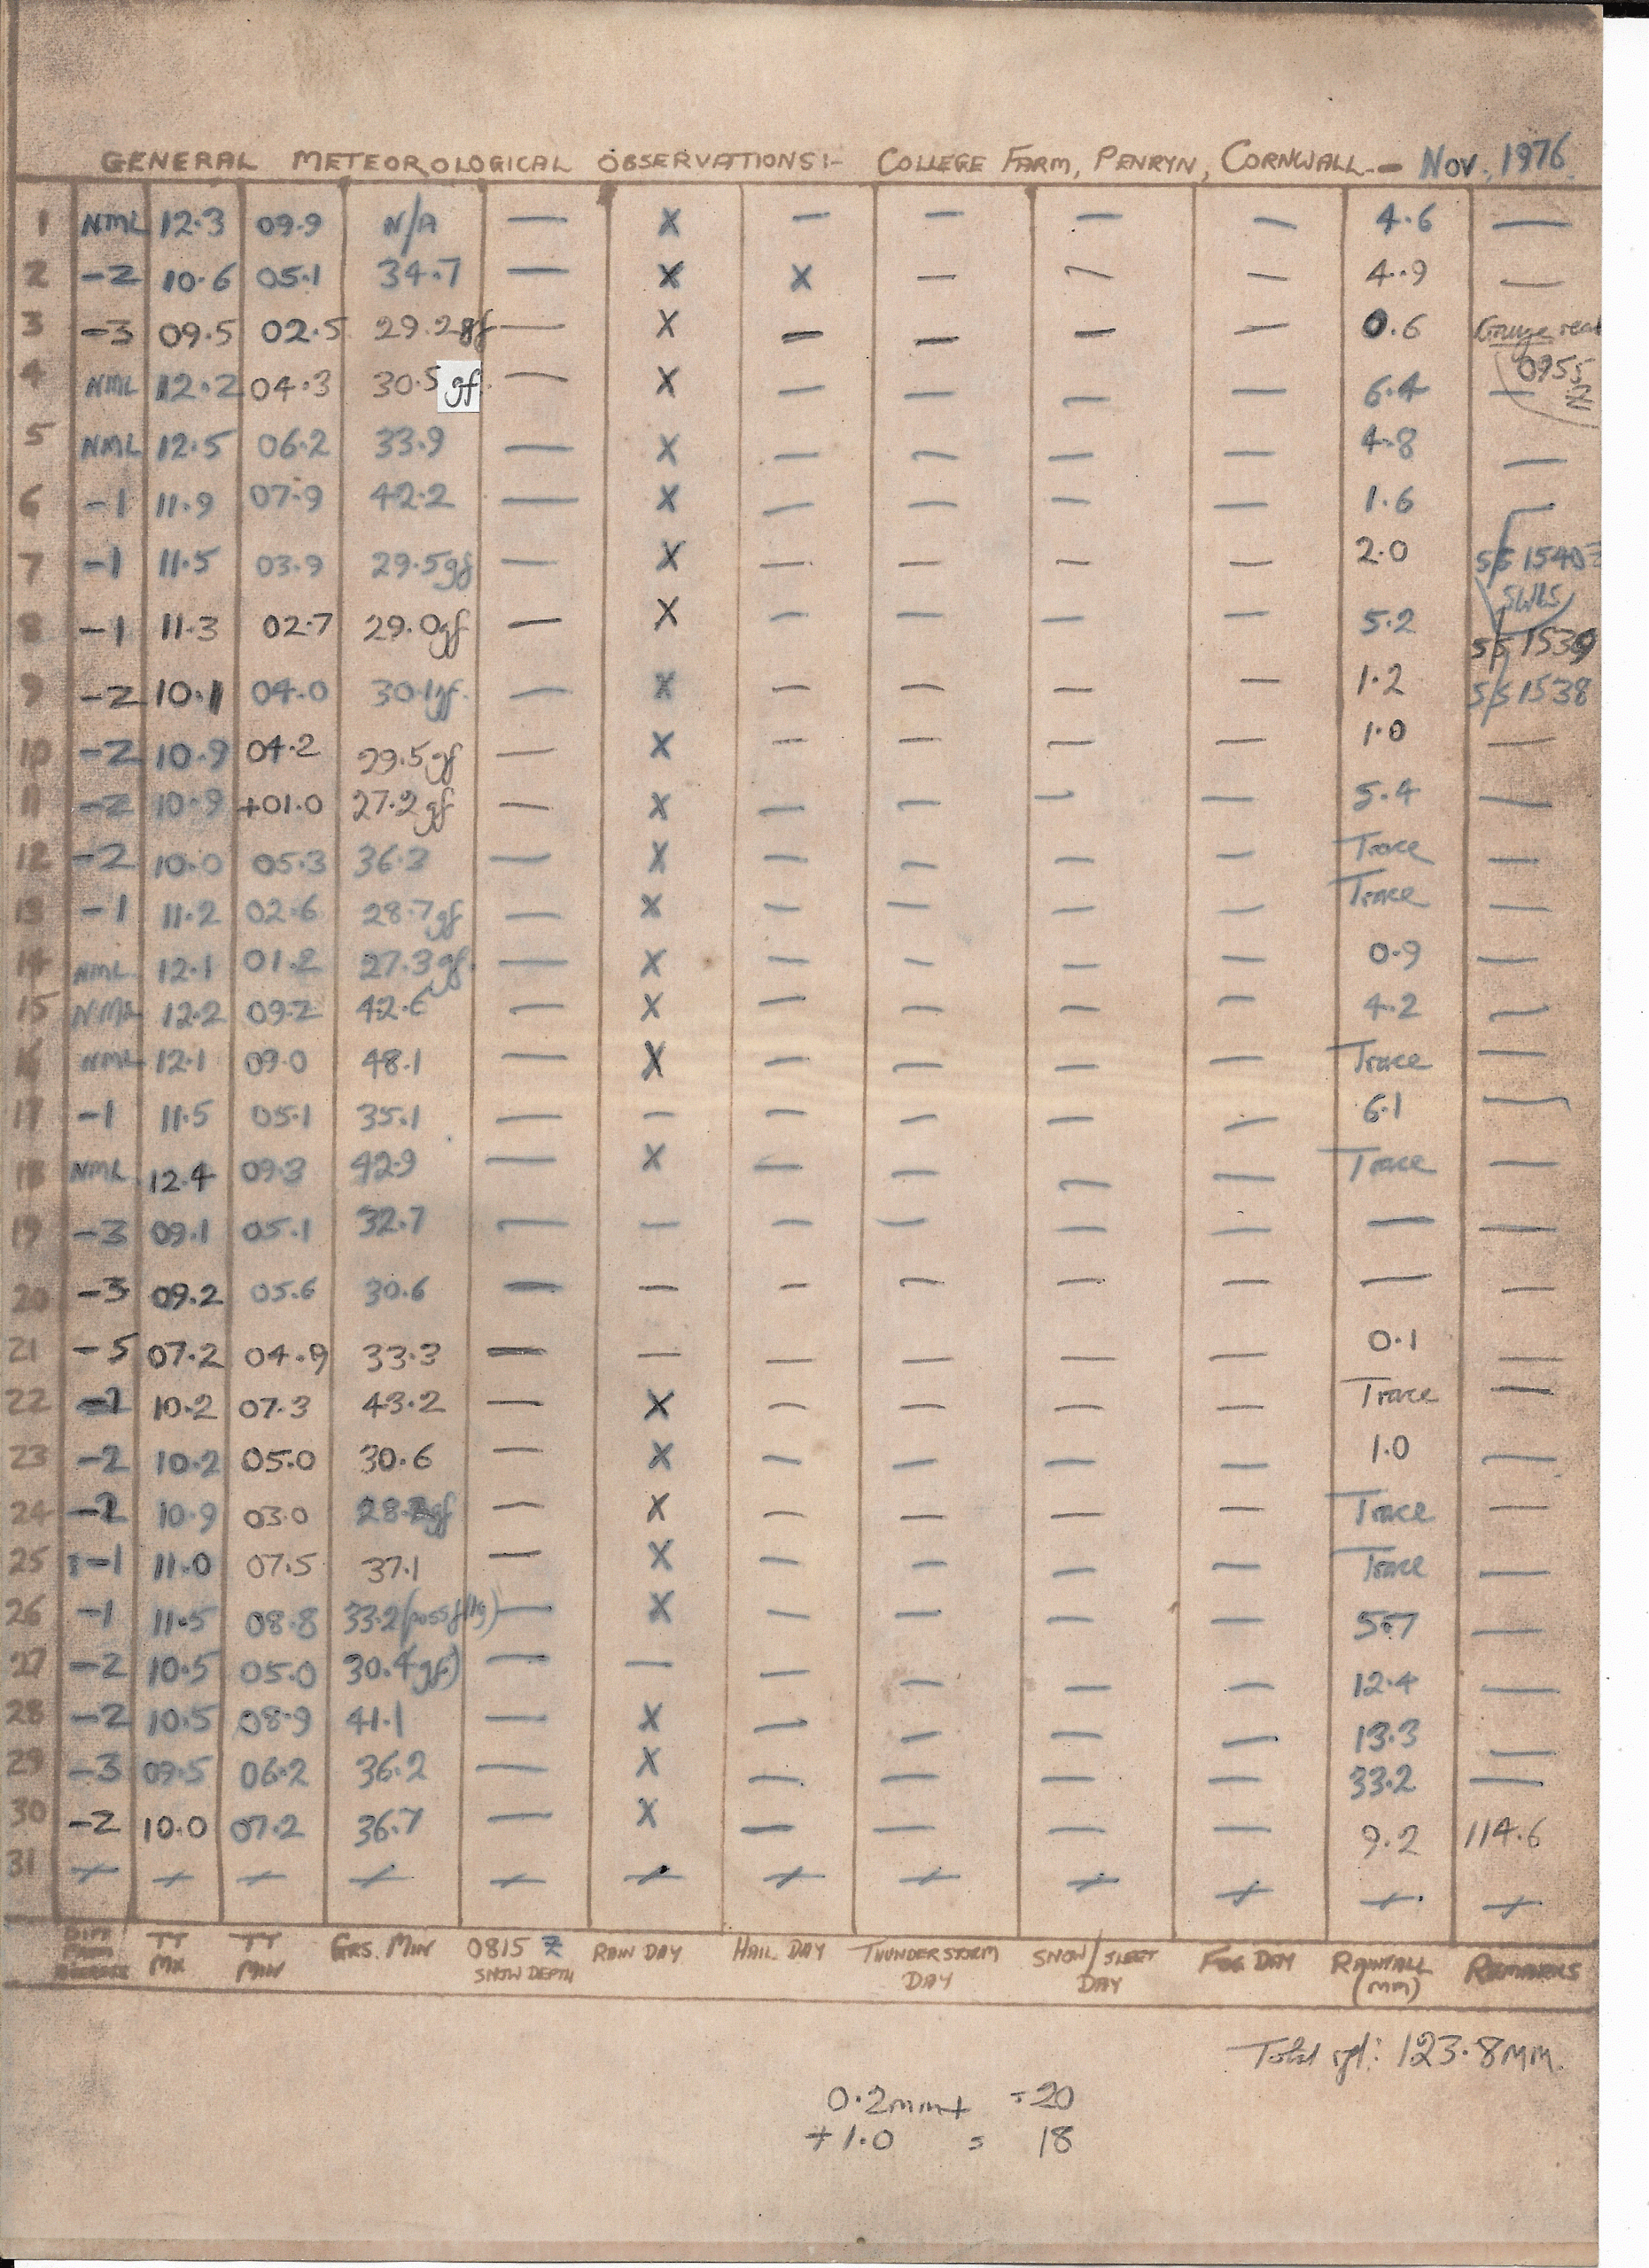 GENERAL METEOROLOGICAL OBSERVATIONS:- COLLEGE FARM, PENRYN, CORNWALL.- NOV. 1976
1 NML 12.3 09.9 N/A — X — — — — 4.6 —
2 -2 10.6 05.1 34.7 — X X — — — 4.9 —
3 -3 09.5 02.5 29.2gf — X — — — — 0.6 Gauge read
0955 Z
4 NML 12.2 04.3 30.5 gf. — X — — — — 6.4 —
5 NML 12.5 06.2 33.9 — X — — — — 4.8 —
6 -1 11.9 07.9 42.2 — X — — — — 1.6 —
7 -1 11.5 03.9 29.5gf — X — — — — 2.0 S/S 1540Z
8 -1 11.3 02.7 29.0gf — X — — — — 5.2 S/S 1539
9 -2 10.1 04.0 30.1gf. — X — — — — 1.2 S/S 1538
10 -2 10.9 04.2 29.5gf — X — — — — 1.0 —
11 -2 10.9 +01.0 27.2gf — X — — — — 5.4 —
12 -2 10.0 05.3 36.3 — X — — — — Trace —
13 -1 11.2 02.6 28.7gf — X — — — — Trace —
14 NML 12.1 01.2 27.3gf. — X — — — — 0.9 —
15 NML 12.2 09.2 42.6 — X — — — — 4.2 —
16 NML 12.1 09.0 48.1 — X — — — — Trace —
17 -1 11.5 05.1 35.1 — — — — — — 6.1 —
18 NML 12.4 09.3 42.9 — X — — — — Trace —
19 -3 09.1 05.1 32.7 — — — — — — — —
20 -3 09.2 05.6 30.6 — — — — — — — —
21 -5 07.2 04.9 33.3 — — — — — — 0.1 —
22 10.2 07.3 43.2 — X — — — — Trace —
23 -2 10.2 05.0 30.6 — X — — — — 1.0 —
24 10.9 03.0 — X — — — — Trace —
25 -1 11.0 07.5 37.1 — X — — — — Trace —
26 -1 11.5 08.8 33.2 — X — — — — 5.7 —
27 -2 10.5 05.0 30.4(gf.) — — — — — — 12.4 —
28 -2 10.5 08.9 41.1 — X — — — — 13.3 —
29 -3 09.5 06.2 36.2 — X — — — — 33.2 —
30 -2 10.0 07.2 36.7 — X — — — — 9.2 114.6
31
DIFF FROM AVERAGE TT MX TT MIN GRS. MIN 0815 Z SNOW DEPTH RAIN DAY HAIL DAY THUNDERSTORM DAY SNOW/SLEET DAY FOG DAY RAINFALL (MM) REMARKS
Total rfl: 123.8MM.
0.2mm+ = 20
+1.0 = 18